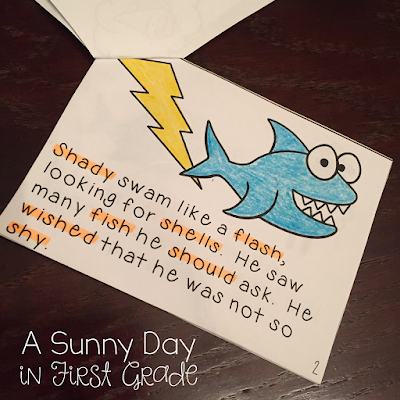 Shady swam like a flash,
looking for shells. He saw
many fish he should ask. He
wished that he was not so
shy.
2
A Sunny Day
in First Grade